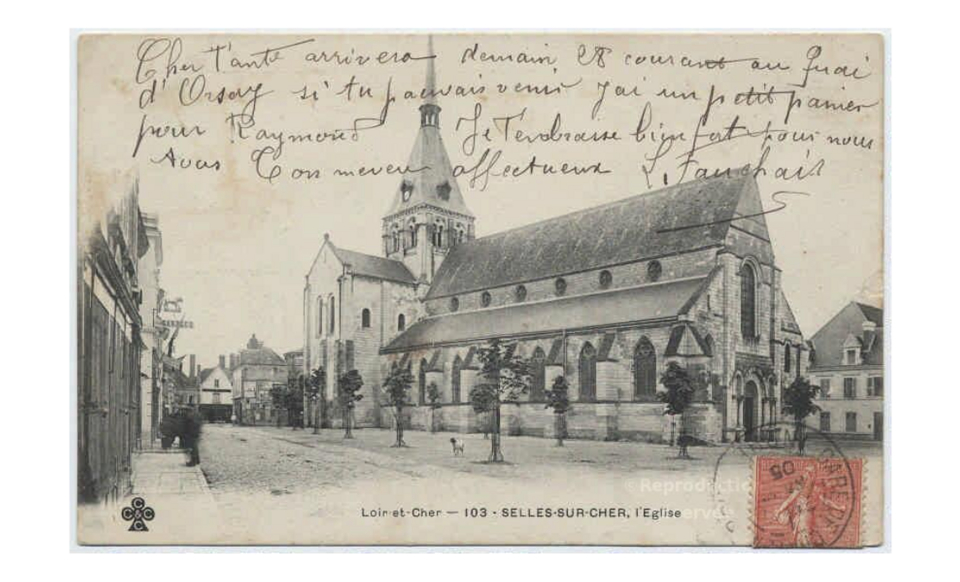 Cher Tante arrivera demain 28 courant au Quai
d'Orsay si tu pouvais venir J'ai un petit panier
pour Raymond Je T'embrasse bien fort pour nous
tous Ton neveu affectueux L. Fauchais
Loir-et-Cher — 103 - SELLES-SUR-CHER, l'Eglise
© Reproduction
réservée
CCCC
05